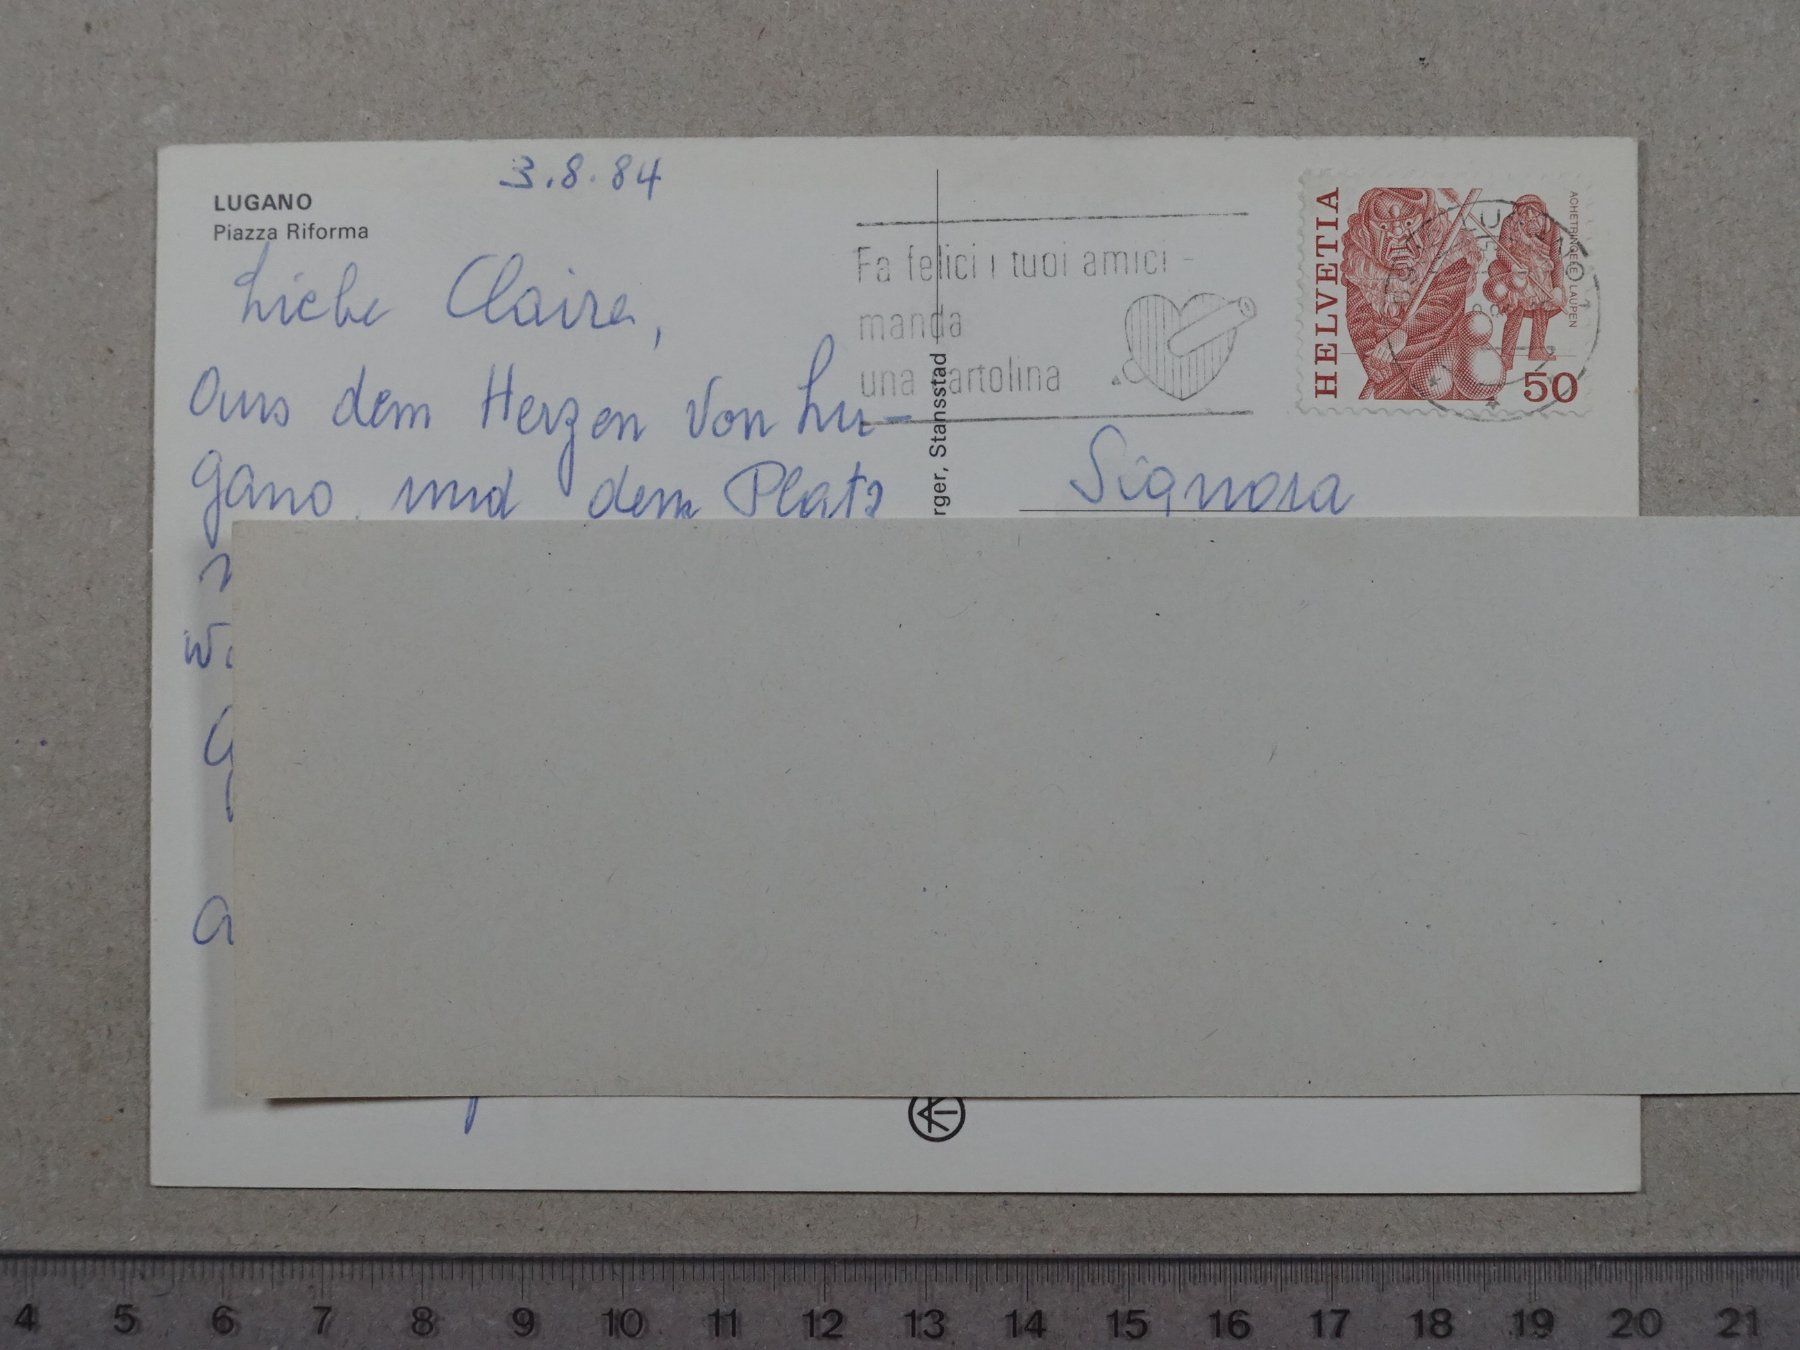 3.8.84
LUGANO
Piazza Riforma
Liebe Claire,
aus dem Herzen von Lu-
gano und dem Platz
Fa felici i tuoi amici -
manda
una cartolina
rger, Stansstad
HELVETIA
ACHETRINGELE LAUPEN
50
Signora
4 5 6 7 8 9 10 11 12 13 14 15 16 17 18 19 20 21